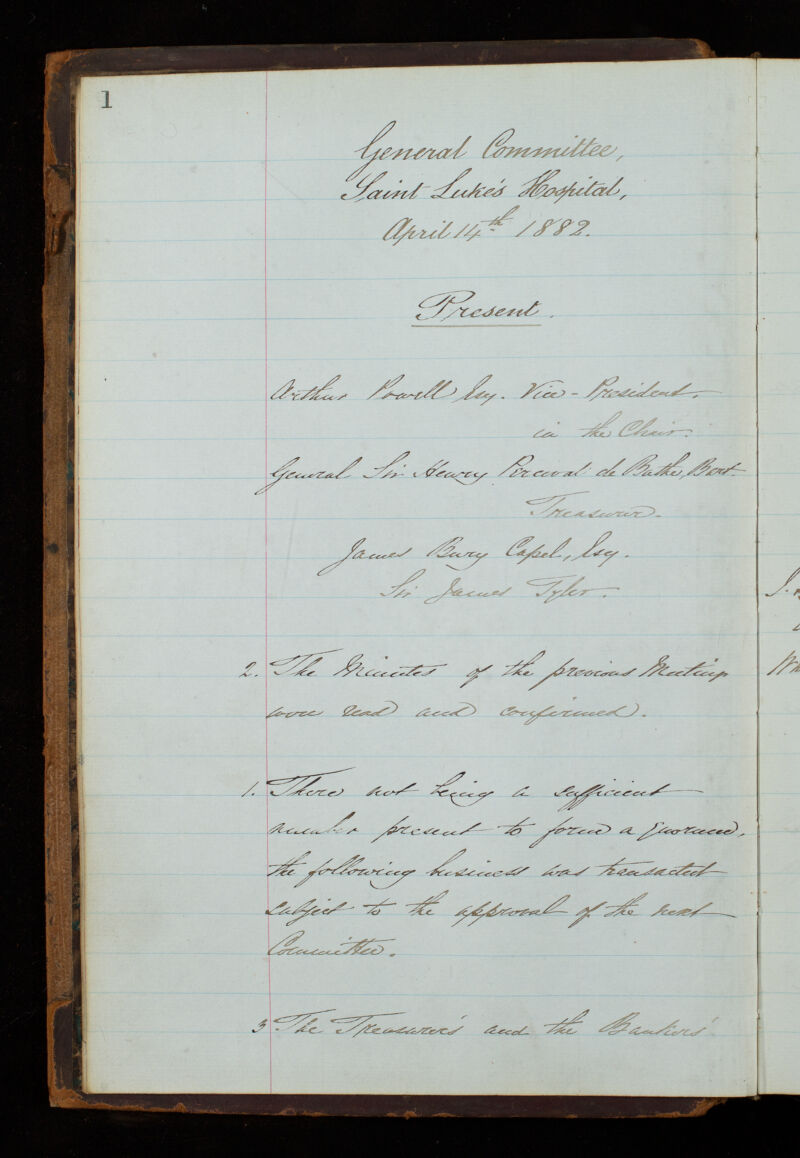 1
General Committee,
Saint Luke's Hospital,
April 14th 1882.
Present.
Arthur Powell Esq. Vice-President.
in the Chair.
General Sir Henry Percival de Bathe, Bart.
Treasurer.
James Bury Capel, Esq.
Sir James Tyler.
2. The Minutes of the previous Meeting
were read and confirmed.
1. There not being a sufficient
number present to form a quorum,
the following business was transacted
subject to the approval of the next
Committee.
3 The Treasurer's and the Bankers'